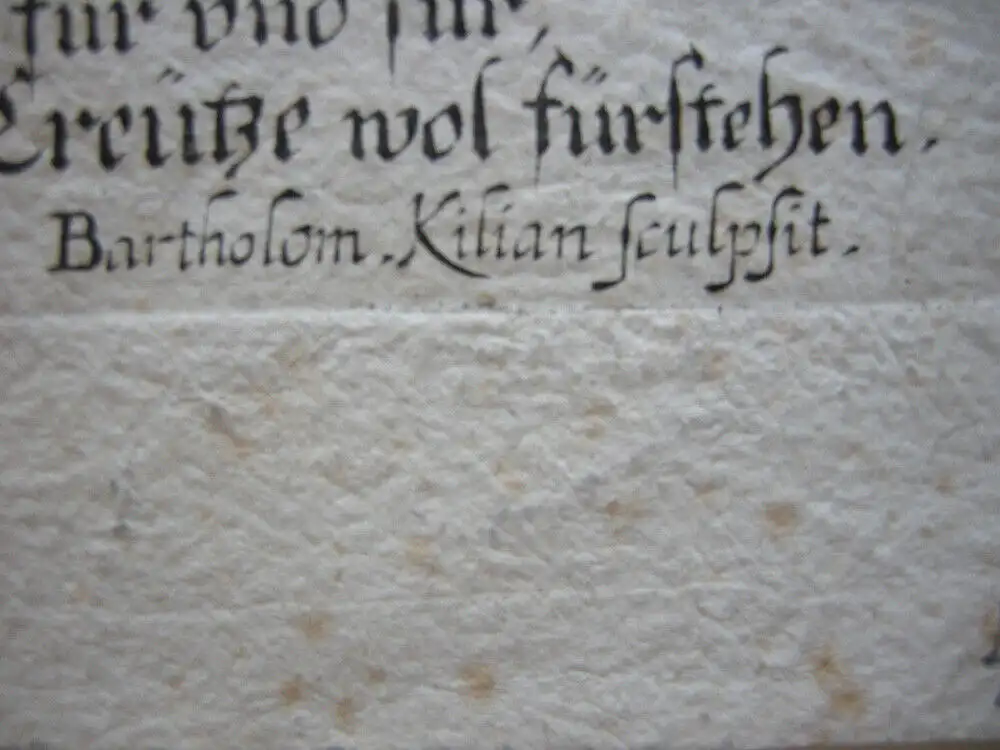 für vnd für,
Creütze wol fürſtehen.
Bartholom. Kilian ſculpſit.